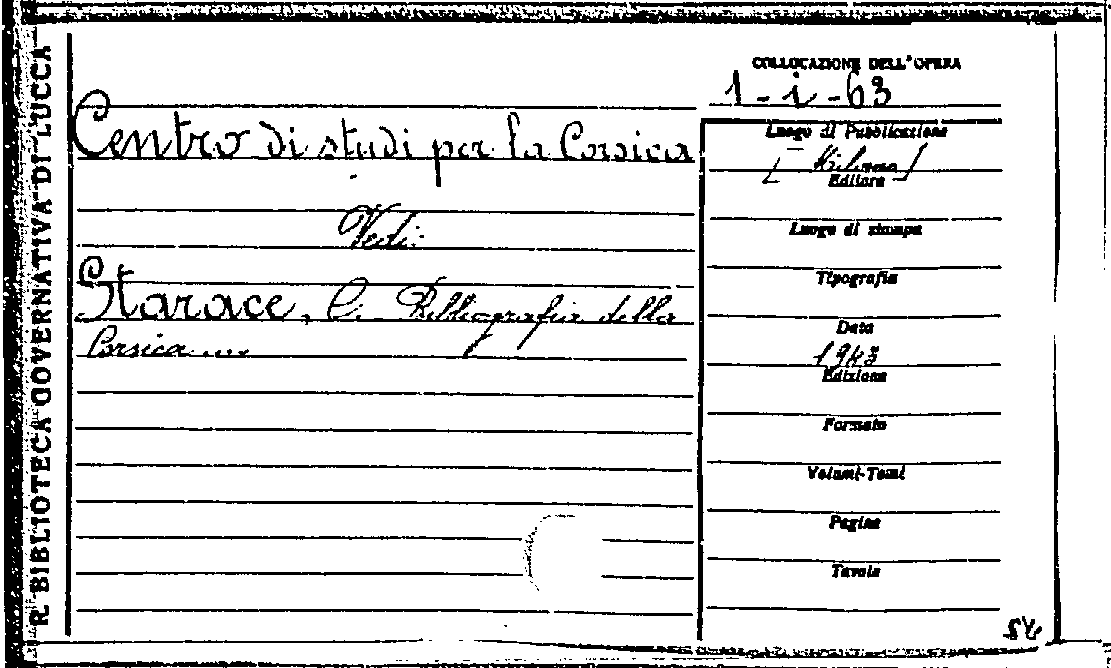 R. BIBLIOTECA GOVERNATIVA DI LUCCA
Centro di studi per la Corsica
Vedi:
Starace, C. Bibliografia della
Corsica ....
COLLOCAZIONE DELL'OPERA
1 - i - 63
Luogo di Pubblicazione
[Milano]
Editore
Luogo di stampa
Tipografia
Data
1943
Edizione
Formato
Volumi-Tomi
Pagine
Tavole